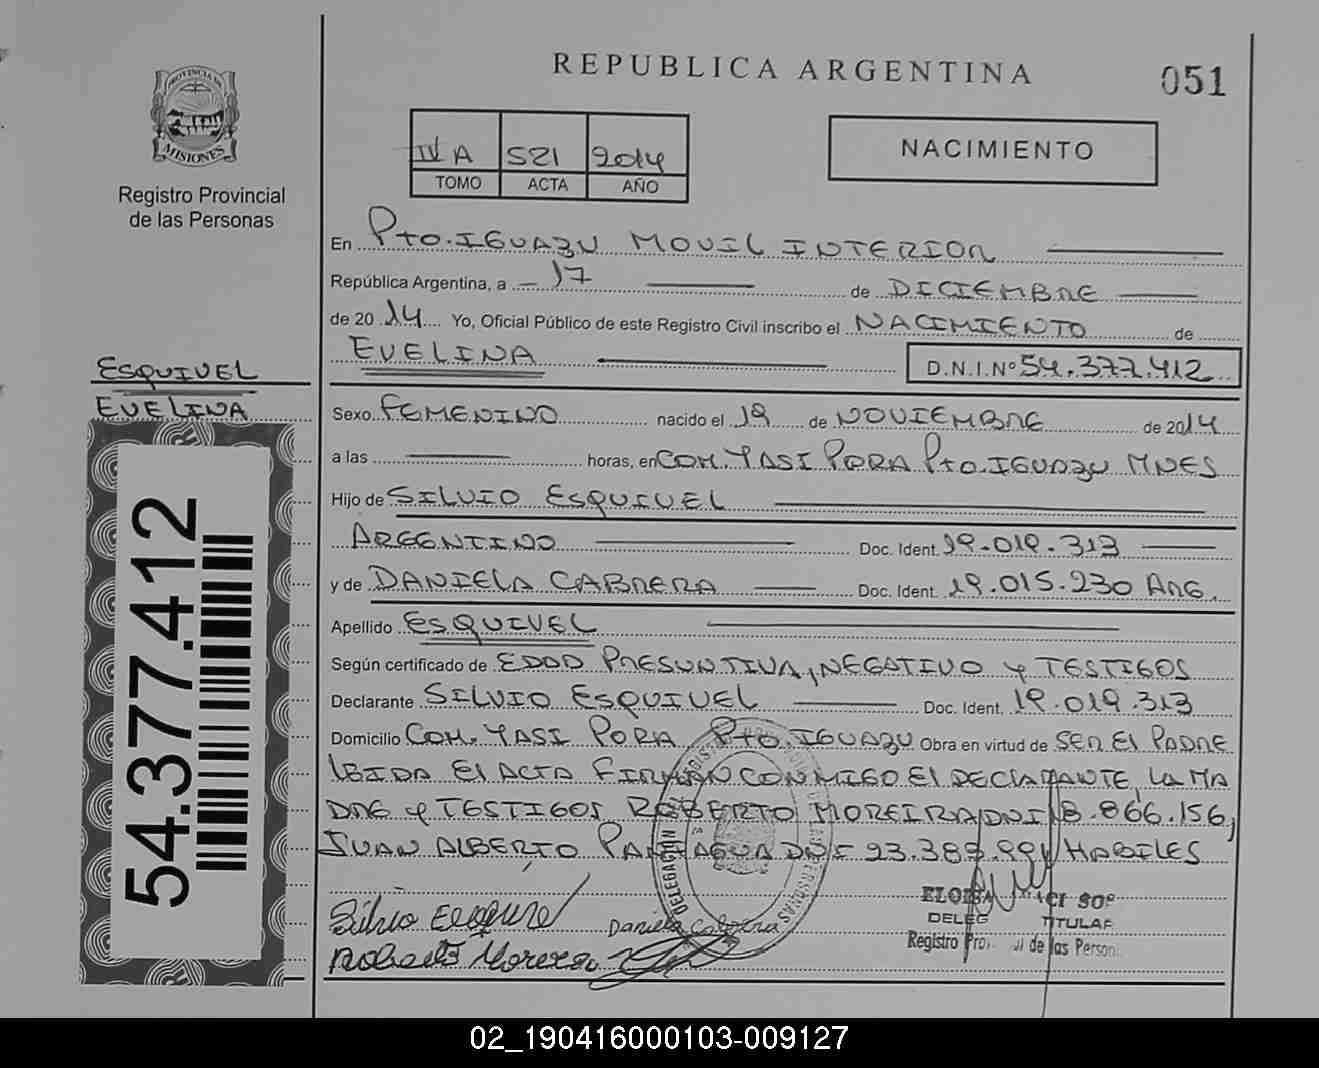 REPUBLICA ARGENTINA
051
PROVINCIA DE
MISIONES
Registro Provincial
de las Personas
IV A 521 2014
TOMO ACTA AÑO
NACIMIENTO
En Pto. IGUAZU MOVIL INTERIOR
República Argentina, a 17 de DICIEMBRE
de 2014 Yo, Oficial Público de este Registro Civil inscribo el NACIMIENTO de
EVELINA D.N.I.Nº 54.377.412
ESQUIVEL
EVELINA
Sexo FEMENINO nacido el 19 de NOVIEMBRE de 2014
a las horas, en COM. YASI PORA Pto. IGUAZU MNES
Hijo de SILVIO ESQUIVEL
ARGENTINO Doc. Ident. 19.019.313
y de DANIELA CABRERA Doc. Ident. 19.015.230 ARG.
Apellido ESQUIVEL
Según certificado de EDAD PRESUNTIVA, NEGATIVO y TESTIGOS
Declarante SILVIO ESQUIVEL Doc. Ident. 19.019.313
Domicilio COM. YASI PORA Pto. IGUAZU Obra en virtud de SER El PADRE
LEIDA El ACTA FIRMAN CONMIGO El DECLARANTE, La MA
DRE y TESTIGOS ROBERTO MOREIRA DNI 18.866.156,
JUAN ALBERTO PANIAGUA DNI 93.389.991 HABILES
54.377.412
DELEGACIÓN
PERSONAS
Silvio Esquivel
Daniela Cabrera
Roberto Moreira
DELEG TITULAR
Registro de las Person
02_190416000103-009127